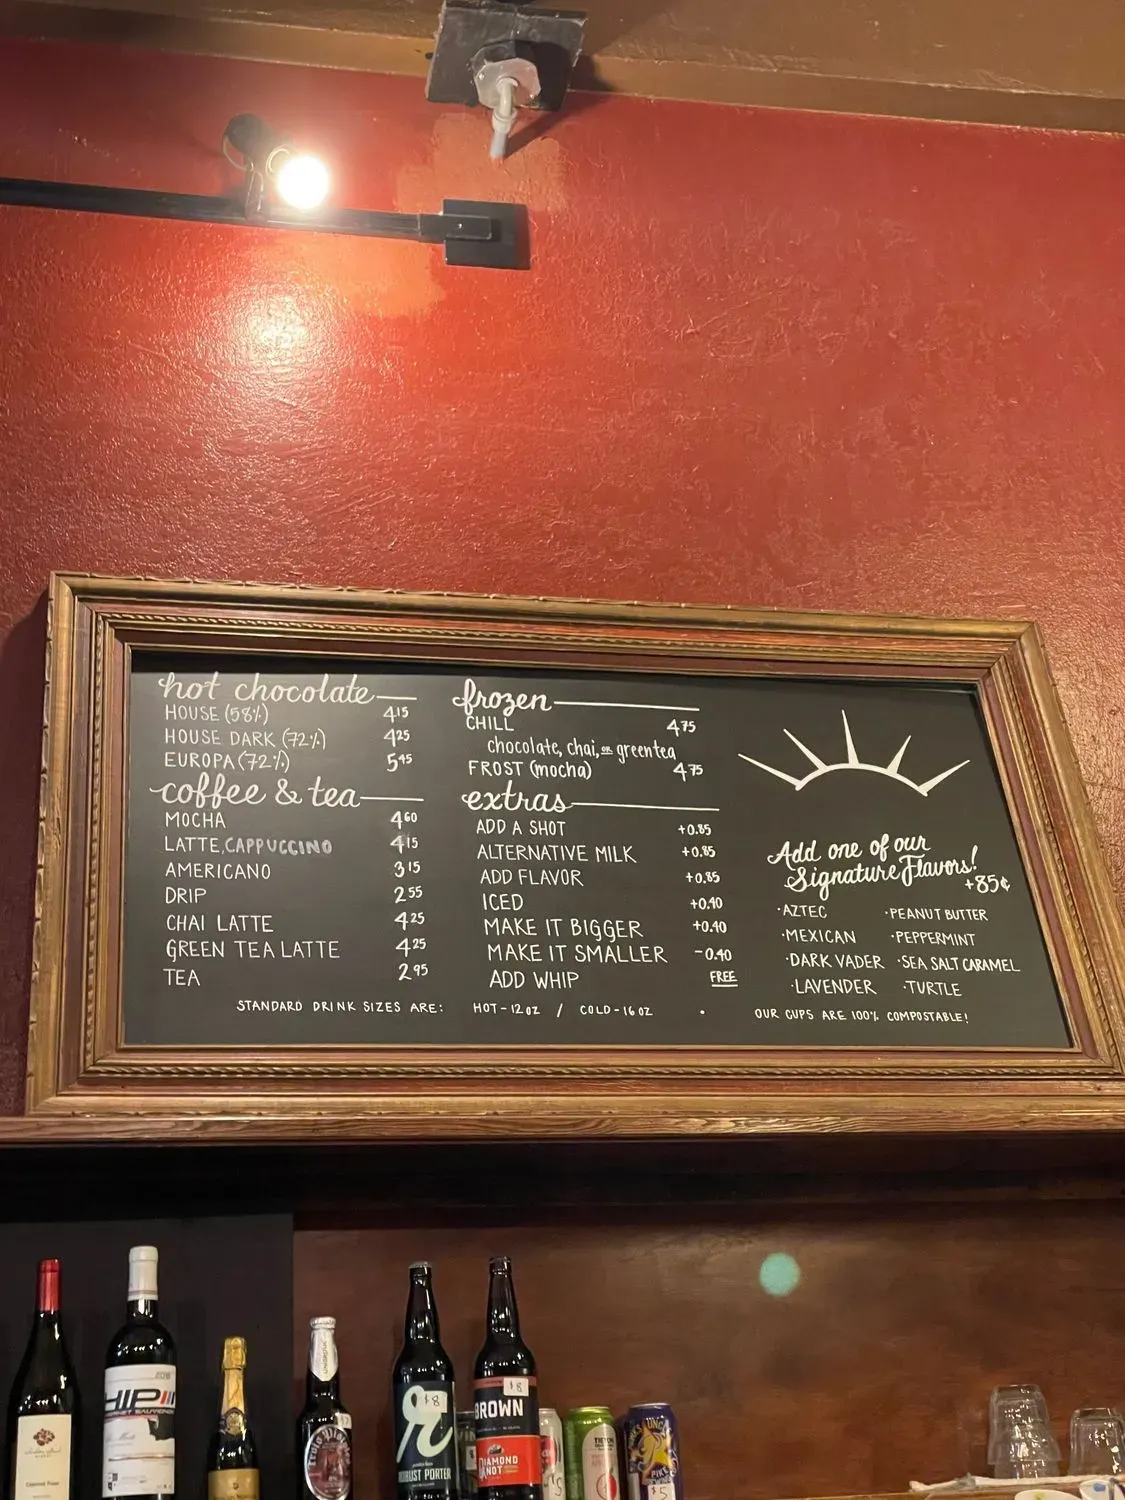 hot chocolate
HOUSE (58%) 4.15
HOUSE DARK (72%) 4.25
EUROPA (72%) 5.45
coffee & tea
MOCHA 4.60
LATTE, CAPPUCCINO 4.15
AMERICANO 3.15
DRIP 2.55
CHAI LATTE 4.25
GREEN TEA LATTE 4.25
TEA 2.95
frozen
CHILL 4.75
chocolate, chai, or green tea
FROST (mocha) 4.75
extras
ADD A SHOT +0.85
ALTERNATIVE MILK +0.85
ADD FLAVOR +0.85
ICED +0.40
MAKE IT BIGGER +0.40
MAKE IT SMALLER -0.40
ADD WHIP FREE
Add one of our
Signature Flavors!
+85¢
·AZTEC ·PEANUT BUTTER
·MEXICAN ·PEPPERMINT
·DARK VADER ·SEA SALT CARAMEL
·LAVENDER ·TURTLE
STANDARD DRINK SIZES ARE: HOT-12 OZ / COLD-16 OZ · OUR CUPS ARE 100% COMPOSTABLE!
HIP
$8
ROBUST PORTER
$8
BROWN
DIAMOND
KNOT
$5